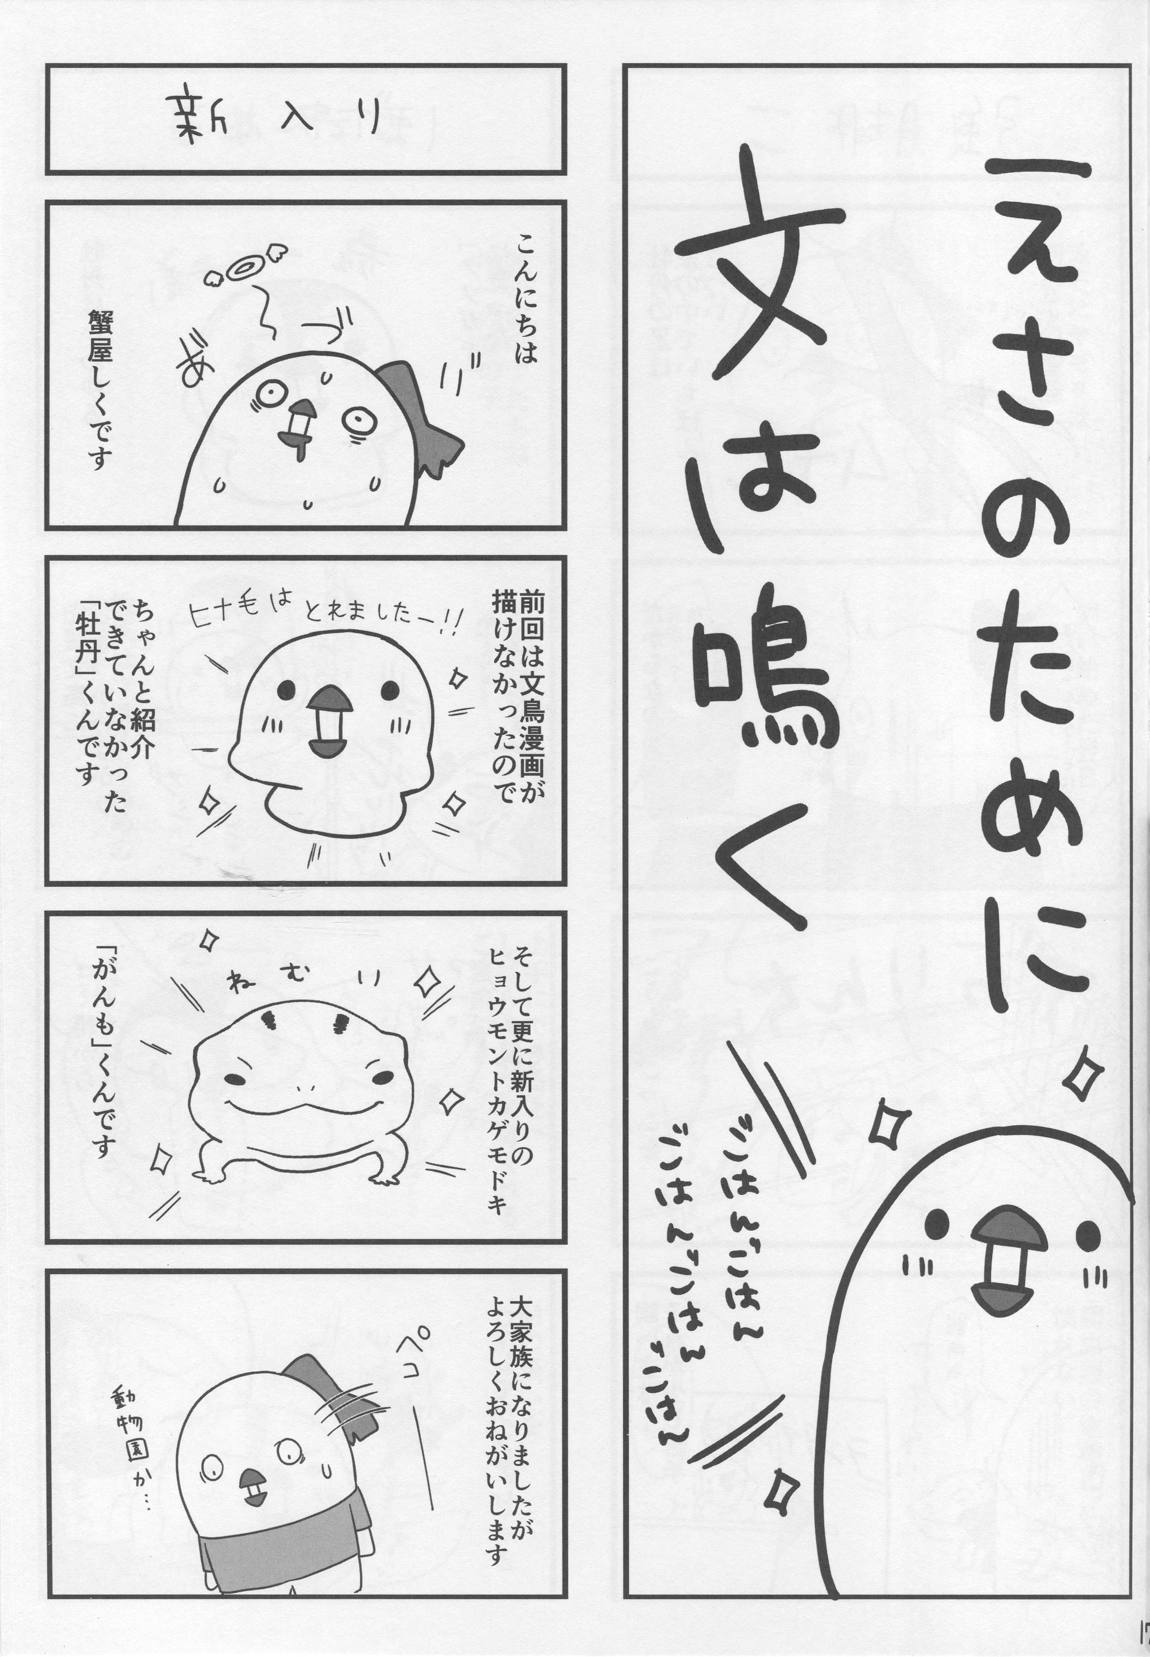 えさのために
文は鳴く
ごはんごはん
ごはんごはん
ごはん
新入り
こんにちは
づ
り゛
あ゛
蟹屋しくです
前回は文鳥漫画が
描けなかったので
ヒナ毛は とれましたー!!
ちゃんと紹介
できていなかった
「牡丹」くんです
そして更に新入りの
ヒョウモントカゲモドキ
ねむり
「がんも」くんです
大家族になりましたが
よろしくおねがいします
ペコ
動物園か…
17